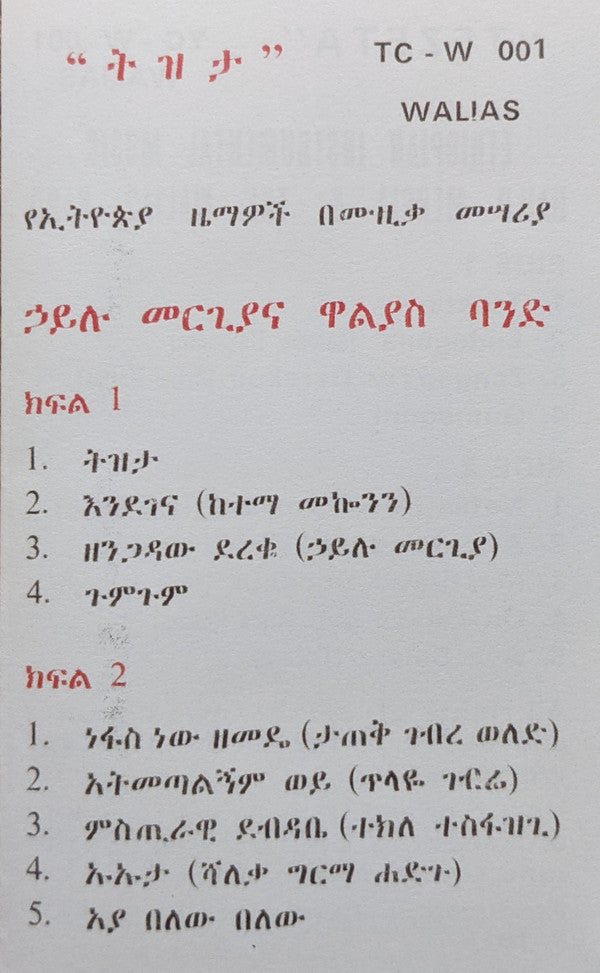 “ትዝታ” TC - W 001
WALIAS
የኢትዮጵያ ዜማዎች በሙዚቃ መሣሪያ
ኃይሉ መርጊያና ዋልያስ ባንድ
ክፍል 1
1. ትዝታ
2. እንደገና (ከተማ መኰንን)
3. ዘንጋዳው ደረቁ (ኃይሉ መርጊያ)
4. ጉምጉም
ክፍል 2
1. ነፋስ ነው ዘመዴ (ታጠቅ ገብረ ወለድ)
2. አትመጣልኝም ወይ (ጥላዬ ገብሬ)
3. ምስጢራዊ ደብዳቤ (ተክለ ተስፋዝጊ)
4. ኡኡታ (ሻለቃ ግርማ ሐድጉ)
5. አያ በለው በለው